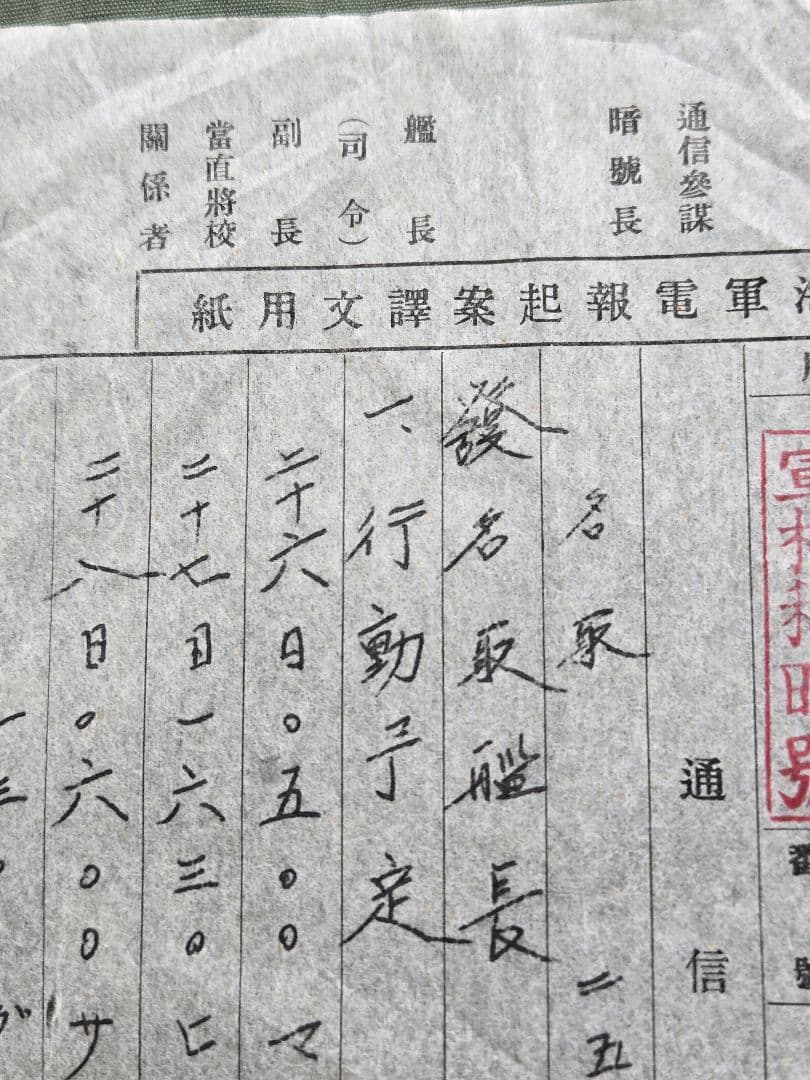 通信參謀
暗號長
艦長
（司令）
副長
當直將校
關係者
軍電報起案譯文用紙
通信
名取 二五
發名取艦長
一、行動予定
二十六日〇五〇〇マ
二十七日一六三〇ヒ
二十八日〇六〇〇サ